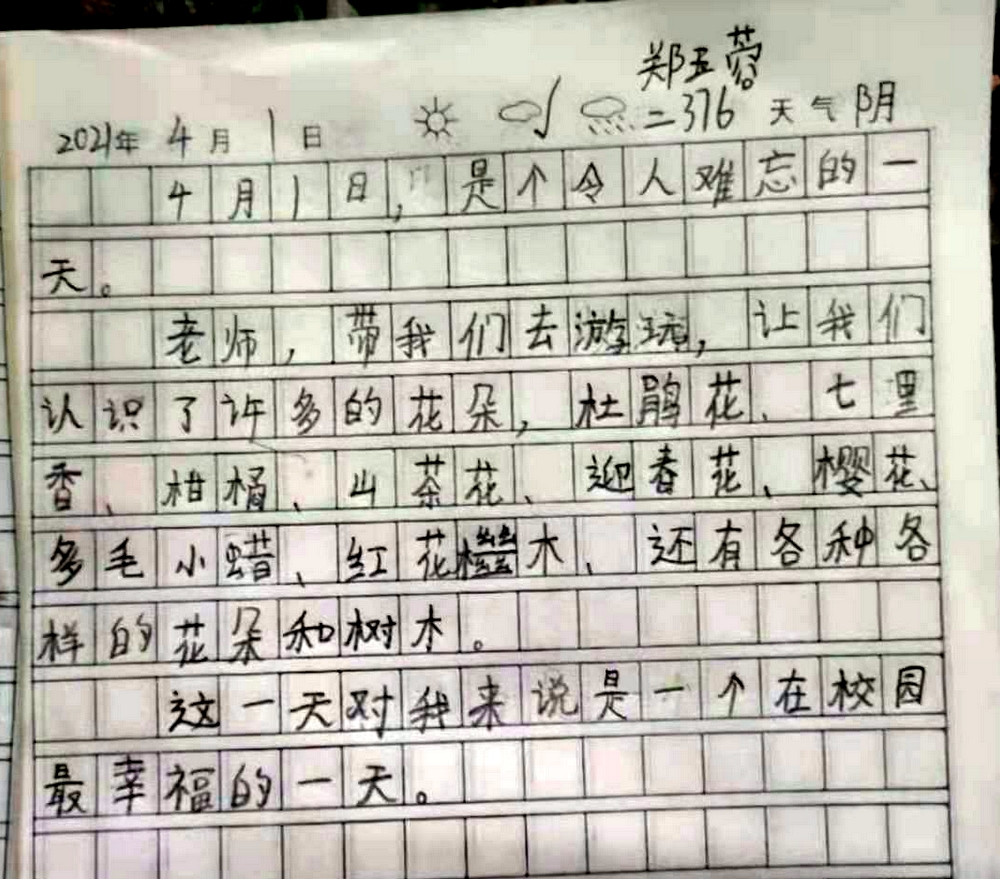 郑玉蓉
2021年 4月 1日 二376 天气 阴
4月1日,是个令人难忘的一
天。
老师,带我们去游玩,让我们
认识了许多的花朵,杜鹃花、七里
香、柑橘、山茶花、迎春花、樱花、
多毛小蜡、红花檵木、还有各种各
样的花朵和树木。
这一天对我来说是一个在校园
最幸福的一天。